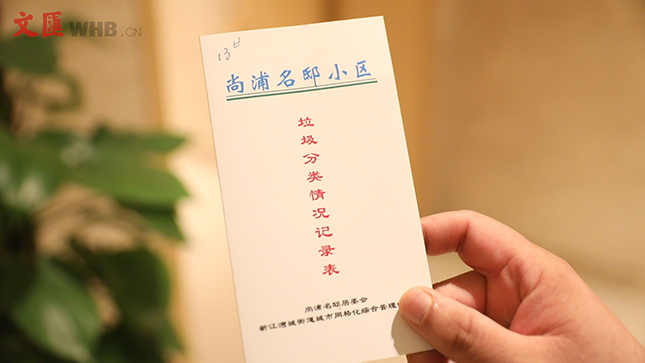 文匯WHB.CN
13日
尚浦名邸小区
垃圾分类情况记录表
尚浦名邸居委会
新江湾城街道城市网格化综合管理